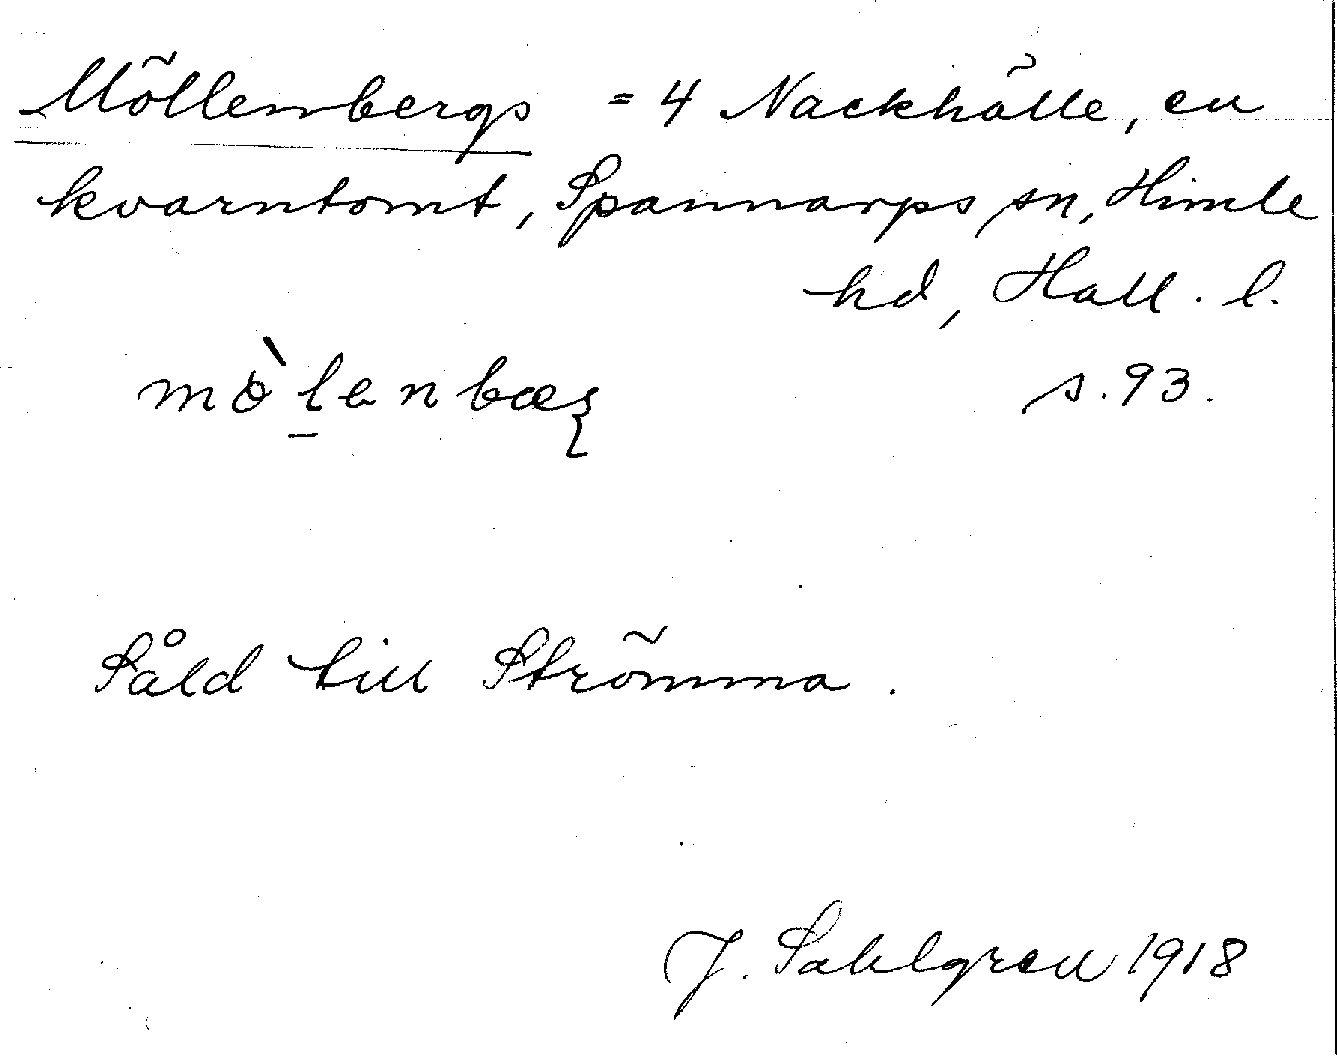 Möllenbergs = 4 Nackhälle, en
kvarntomt, Spannarps sn, Himle
hd, Hall. l.
s. 93.
Såld till Strömma.
J. Sahlgren 1918